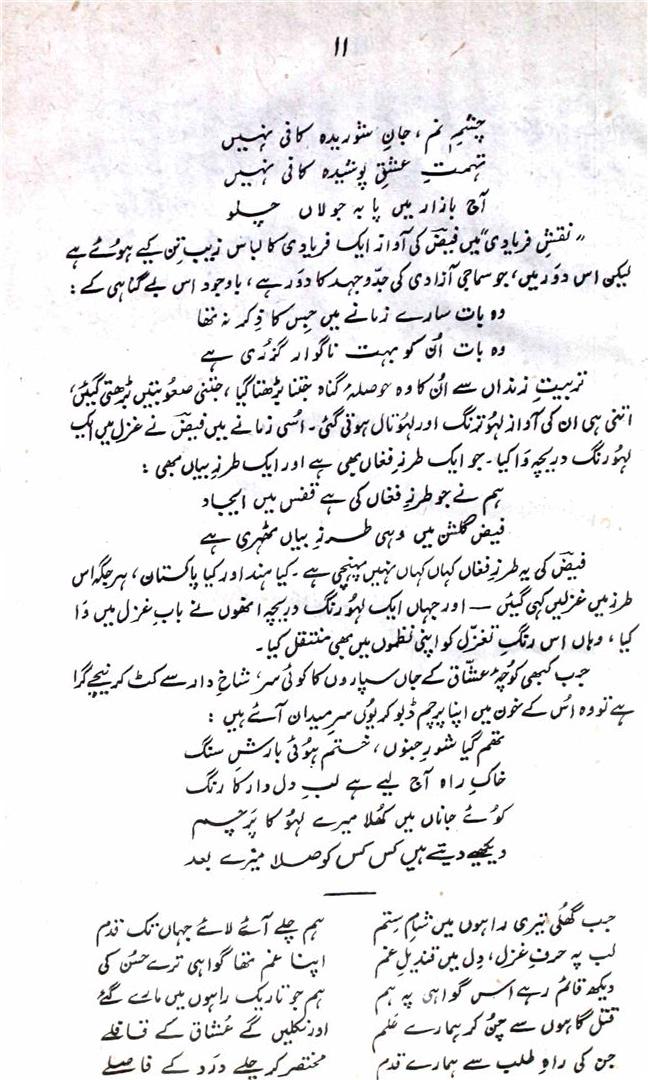 ۱۱
چشمِ نم، جانِ شوریدہ کافی نہیں
تہمتِ عشقِ پوشیدہ کافی نہیں
آج بازار میں پا بہ جولاں چلو
”نقشِ فریادی“ میں فیضؔ کی آواز ایک فریادی کا لباس زیبِ تن کیے ہوئے ہے
لیکن اس دَور میں، جو سماجی آزادی کی جدّوجہد کا دَور ہے، باوجود اس بے گناہی کے:
وہ بات سارے زمانے میں جس کا ذِکر نہ تھا
وہ بات اُن کو بہت ناگوار گزری ہے
تربیتِ زنداں سے اُن کا وہ حوصلۂ گناہ جتنا بڑھتا گیا، جتنی صعوبتیں بڑھتی گئیں،
اتنی ہی ان کی آواز لہُو ترنگ اور لہُو تال ہوتی گئی۔ اسُی زمانے میں فیضؔ نے غزل میں ایک
لہُو رنگ دریچہ وَا کیا۔ جو ایک طرزِ فغاں بھی ہے اور ایک طرزِ بیاں بھی:
ہم نے جو طرزِ فغاں کی ہے قفس میں ایجاد
فیضؔ گلشن میں وہی طرزِ بیاں ٹھہری ہے
فیضؔ کی یہ طرزِ فغاں کہاں کہاں نہیں پہنچی ہے۔ کیا ہند اور کیا پاکستان، ہر جگہ اس
طرز میں غزلیں کہی گیئں — اور جہاں ایک لہُو رنگ دریچہ انھوں نے بابِ غزل میں وَا
کیا، وہاں اس رنگِ تغزّل کو اپنی نظموں میں بھی منتقل کیا۔
جب کبھی کوُچۂ عشّاق کے جاں سپاروں کا کوئی سر، شاخِ دار سے کٹ کر نیچے گرا
ہے تو وہ اُس کے خون میں اپنا پرچم ڈبو کر یوُں سرِ میدان آئے ہیں:
تھم گیا شورِ جنوں، ختم ہوُئی بارشِ سنگ
خاکِ راہ آج لیے ہے لبِ دل دار کا رنگ
کوُئے جاناں میں کھُلا میرے لہوُ کا پَرچم
دیکھیے دیتے ہیں کس کس کو صلا میرے بعد
جب گھُلی تیری راہوں میں شامِ ستم ہم چلے آئے لائے جہاں تک قدم
لب پہ حرفِ غزل، دِل میں قندیلِ غم اپنا غم تھا گواہی ترے حسُن کی
دیکھ قائم رہے اس گواہی پہ ہم ہم جو تاریک راہوں میں مارے گئے
قتل گاہوں سے چُن کر ہمارے عَلم اور نکلیں گے عُشّاق کے قافلے
جن کی راہِ طلب سے ہمارے قدم مختصر کر چلے دَرد کے فاصلے